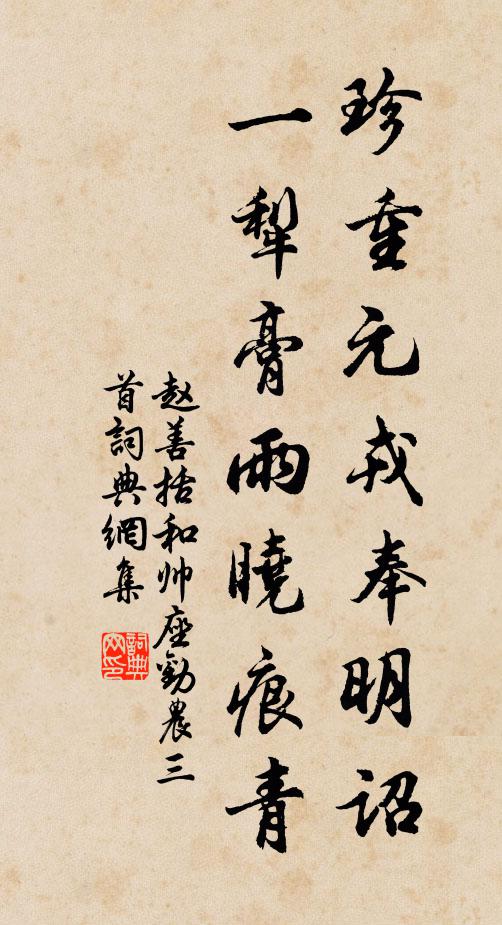 珍重元戎奉明詔
一犁膏雨曉痕青
赵善括和帅座勸農三
首詞典網集
詞典網印